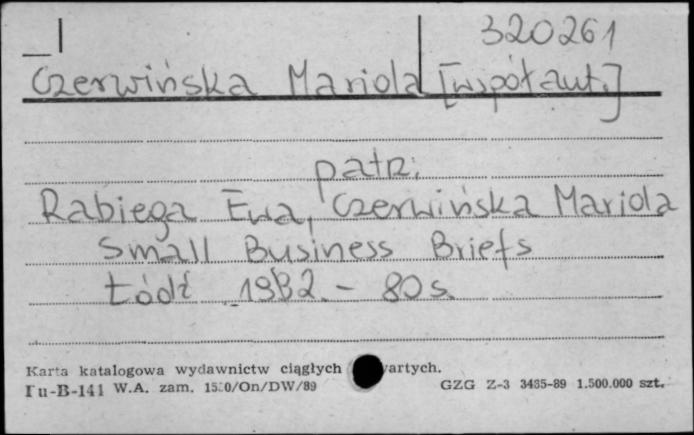 320261
Czerwińska Mariola [współaut.]
patrz:
Rabiega Ewa, Czerwińska Mariola
Small Business Briefs
Łódź 1992. - 80 s.
Karta katalogowa wydawnictw ciągłych
Pu-B-141 W.A. zam. /On/DW/89 GZG Z-3 3485-89 1.500.000 szt.